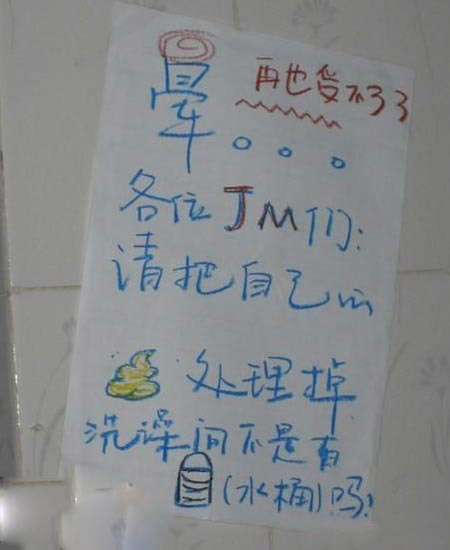 晕 再也受不了了
。。。
各位JM们:
请把自己的
处理掉
洗澡间不是有
(水桶)吗!